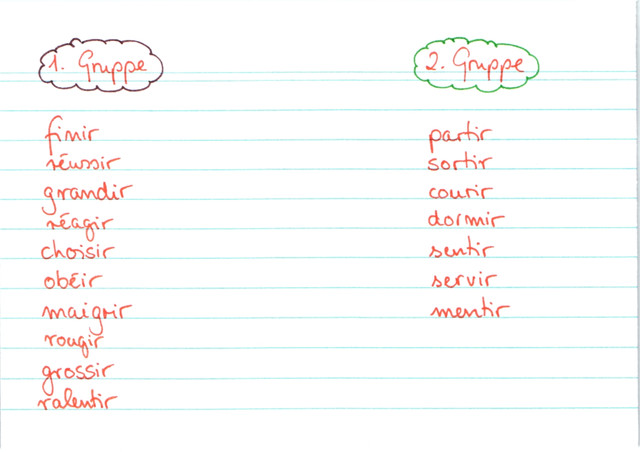 1. Gruppe
finir
réussir
grandir
réagir
choisir
obéir
maigrir
rougir
grossir
ralentir
2. Gruppe
partir
sortir
courir
dormir
sentir
servir
mentir